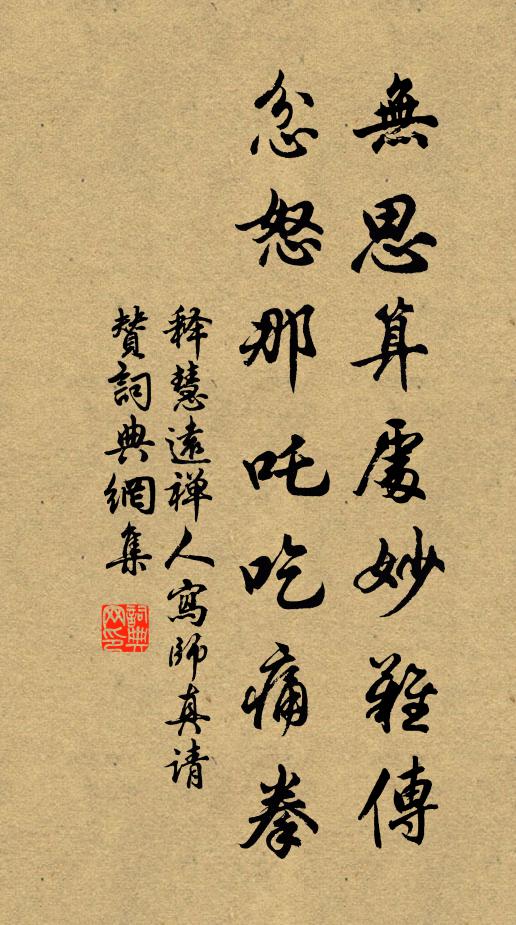 無思算處妙難傳
忿怒那吒吃痛拳
释慧遠禅人寫師真请
贊詞典網集
詞典
网印